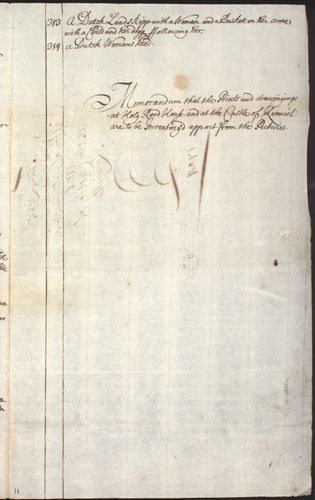 313 A Dutch Landskipp with a Woman and a Basket on her arme
with a Child and her dogg ffollowing her.
314 a Dutch Womans head.
Memorandum that the Prints and drawingings
at Holy Rood House and at the Castle of Kenniel
are to be Inventary'd appart from the Pictures.
11